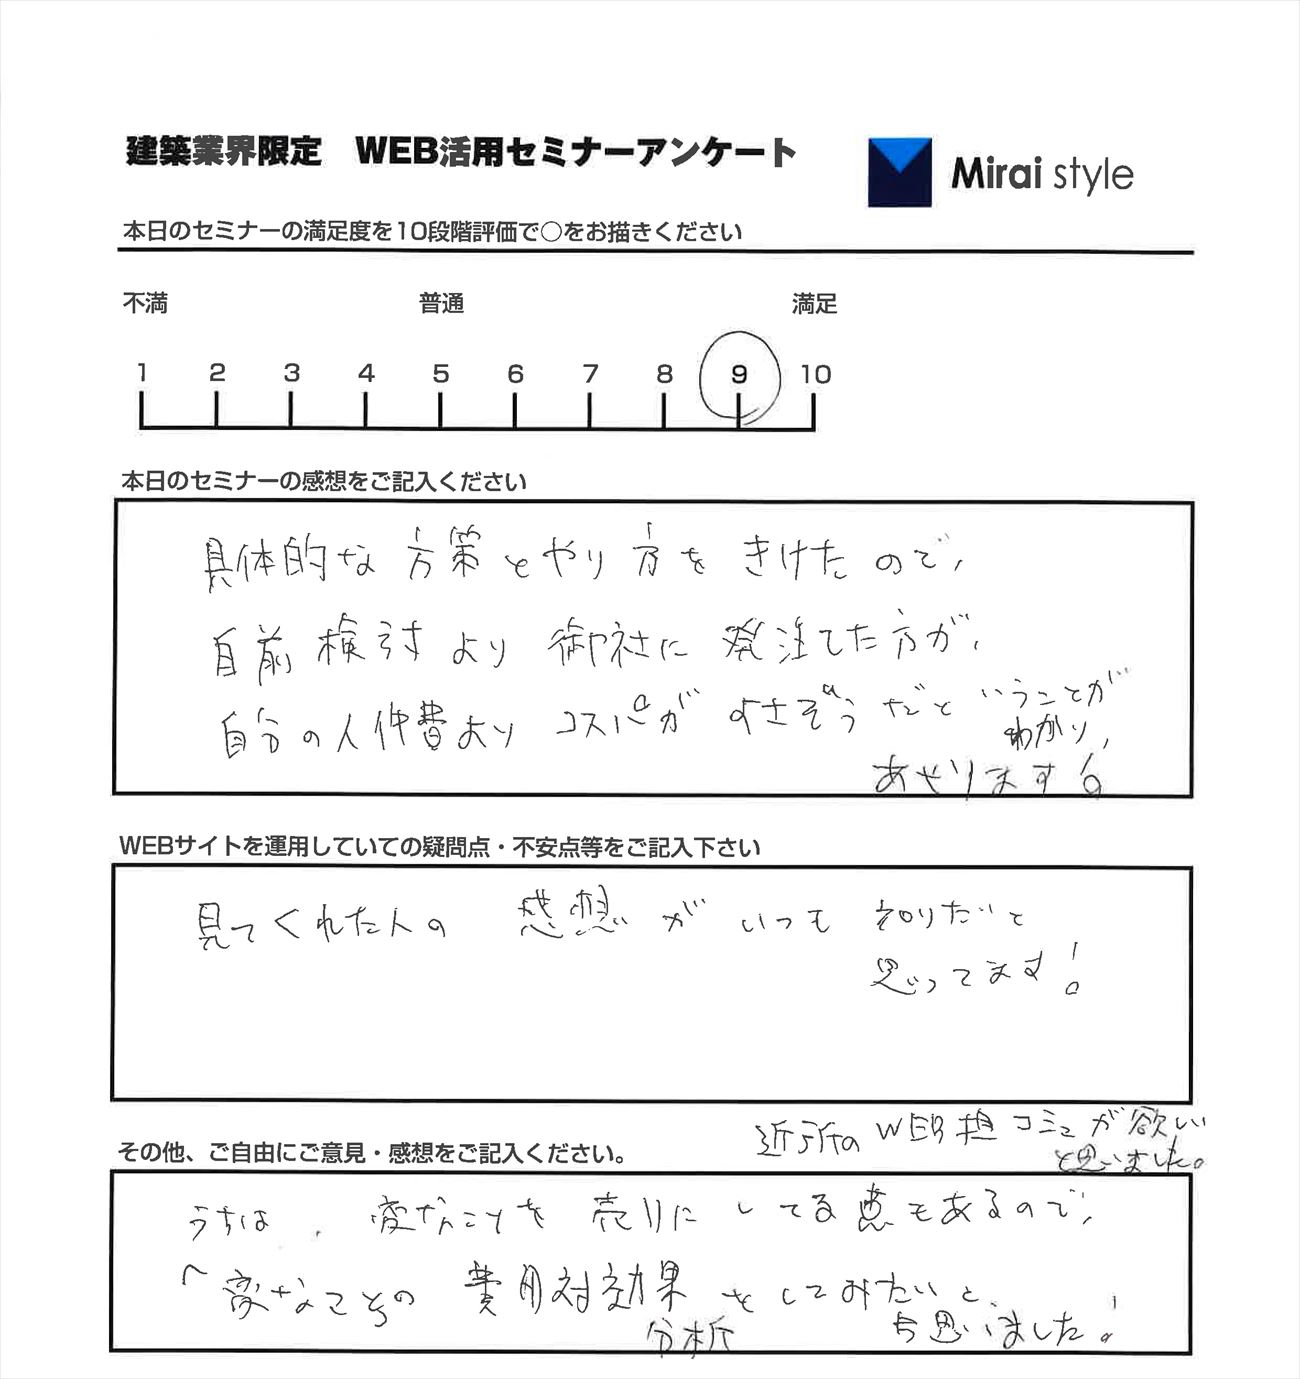 建築業界限定　WEB活用セミナーアンケート
Mirai style
本日のセミナーの満足度を10段階評価で○をお描きください
不満 普通 満足
1 2 3 4 5 6 7 8 9 10
本日のセミナーの感想をご記入ください
具体的な方策とやり方をきけたので、
自前検討より御社に発注した方が、
自分の人件費よりコスパがよさそうだと いうことが
わかり、
あせります！
WEBサイトを運用していての疑問点・不安点等をご記入下さい
見てくれた人の 感想が いつも 知りたいと
思ってます！
近所の WEB担 コミュが欲しい
と思いました。
その他、ご自由にご意見・感想をご記入ください。
うちは、変なことを売りにしてる点もあるので、
変なことの 費用対効果をしてみたいと、
分析 も思いました！